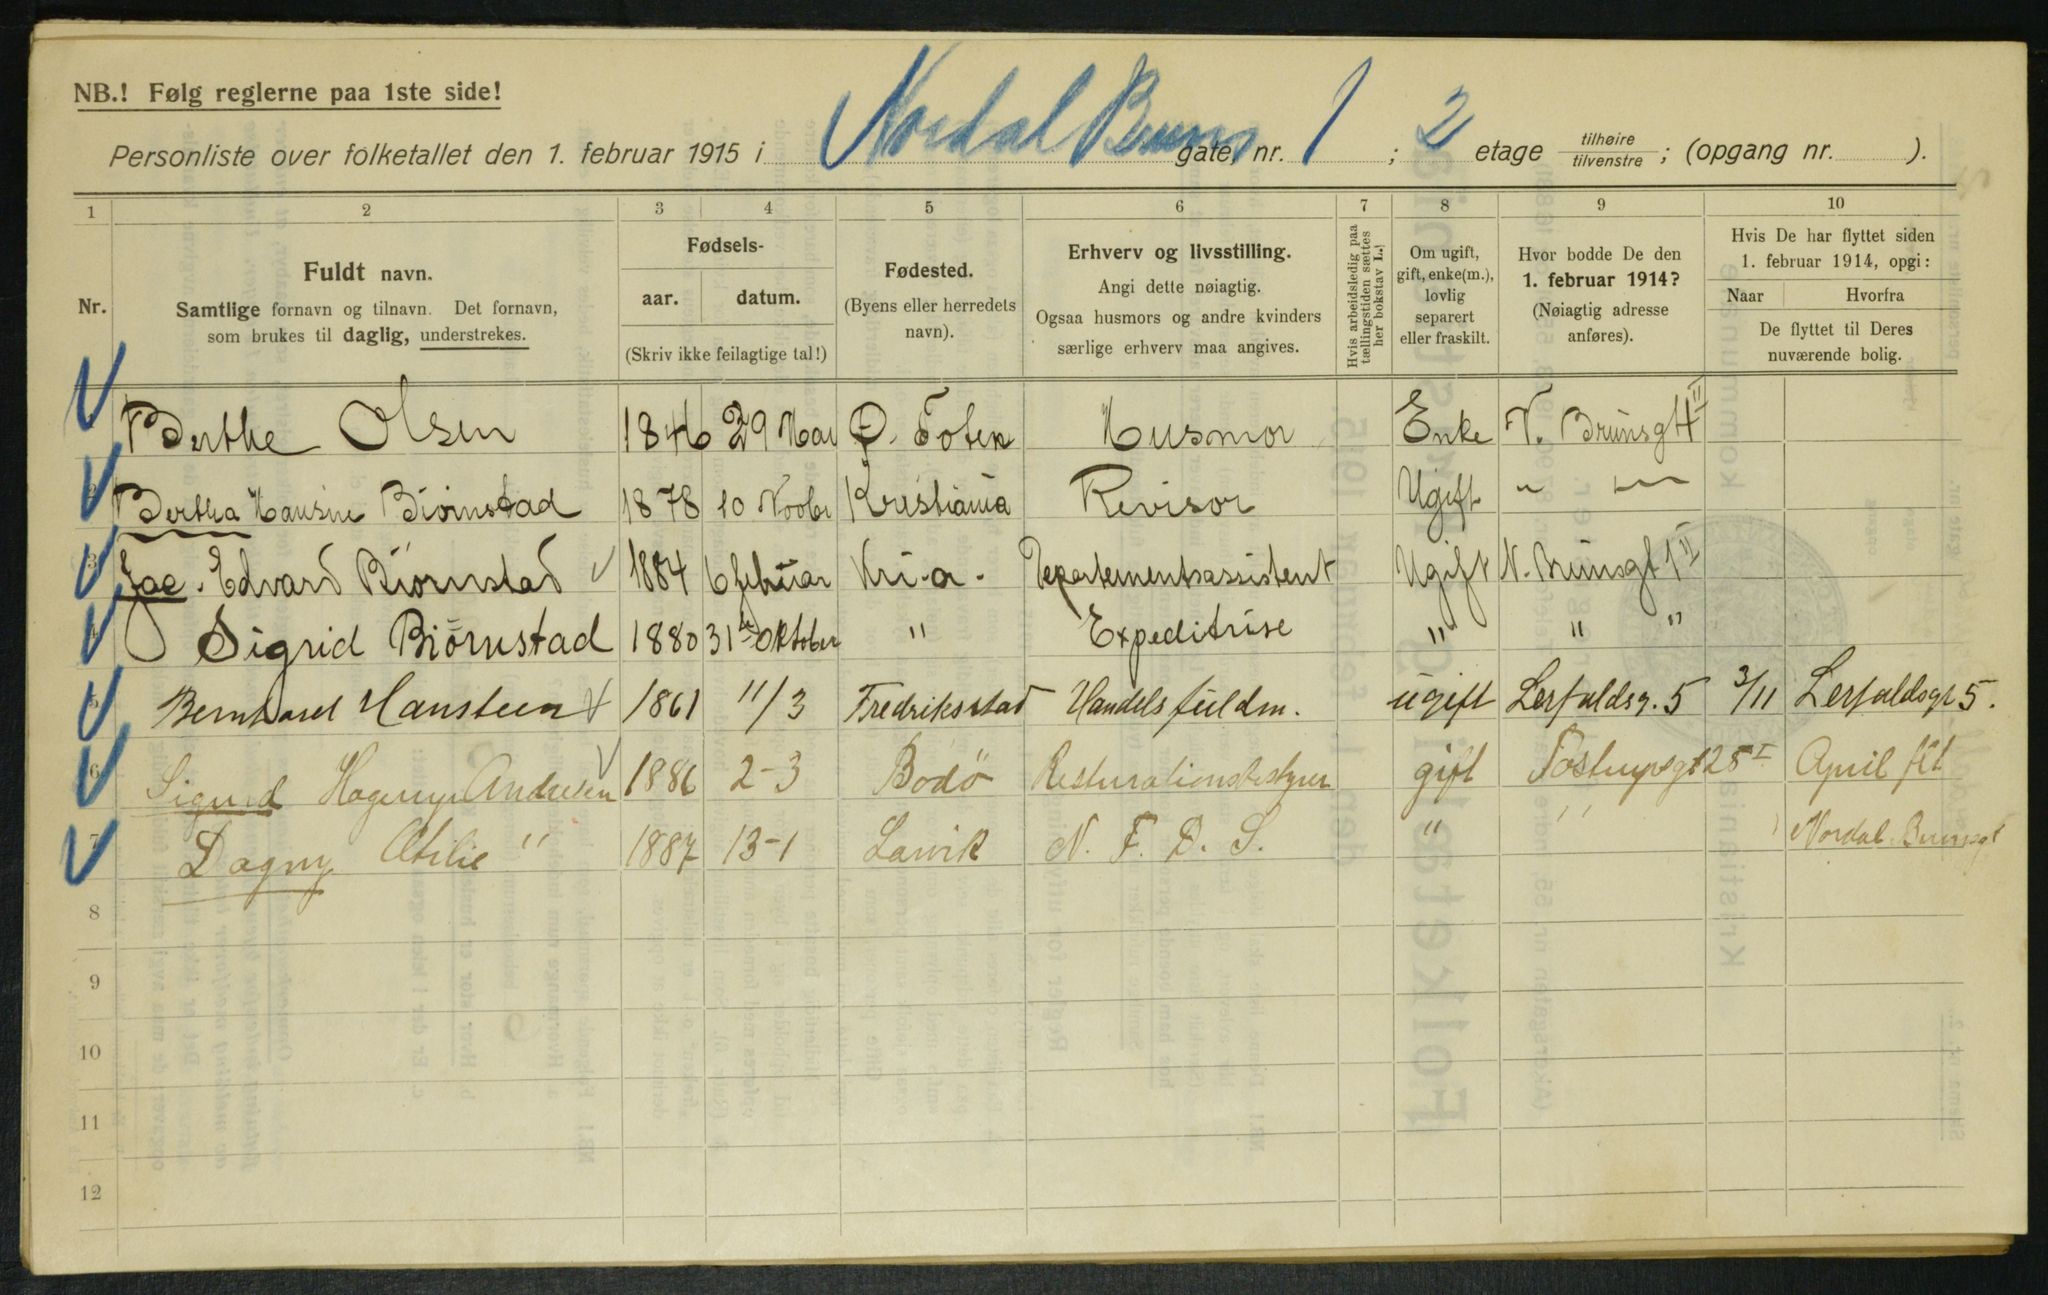 NB.! Følg reglerne paa 1ste side!
Personliste over folketallet den 1. februar 1915 i Nordal Bruns gate, nr. 1 ; 2 etage tilhøire / tilvenstre ; (opgang nr. ).
1 2 3 4 5 6 7 8 9 10
Nr.
Fuldt navn.
Samtlige fornavn og tilnavn. Det fornavn,
som brukes til daglig, understrekes.
Fødsels-
aar. datum.
(Skriv ikke feilagtige tal!)
Fødested.
(Byens eller herredets
navn).
Erhverv og livsstilling.
Angi dette nøiagtig.
Ogsaa husmors og andre kvinders
særlige erhverv maa angives.
Hvis arbeidsledig paa
tællingstiden sættes
her bokstav L.
Om ugift,
gift, enke(m.),
lovlig
separert
eller fraskilt.
Hvor bodde De den
1. februar 1914?
(Nøiagtig adresse
anføres).
Hvis De har flyttet siden
1. februar 1914, opgi:
Naar Hvorfra
De flyttet til Deres
nuværende bolig.
Berthe Olsen 1846 29 Mai Ø. Toten Husmor Enke N. Brunsgt 1 II
2 Bertha Hansine Biørnstad 1878 10 Novbr Kristiania Revisor Ugift " "
3 Jac. Edvard Biørnstad 1884 6 februar Kri-a- Departementsassistent Ugift N. Brunsgt 1 II
4 Sigrid Biørnstad 1880 31te Oktober " Expeditrise " " "
5 Bernhard Hansteen 1861 11/3 Fredriksstad Handelsfuldm. ugift Lerfaldsg. 5 3/11 Lerfaldsgt 5.
6 Sigurd Andresen 1886 2-3 Bodö Resturationsbestyrer gift 28 I April
7 Dagny Otilie " 1887 13-1 Larvik N. F. D. S. " " Nordal Brunsgt
8
9
10
11
12